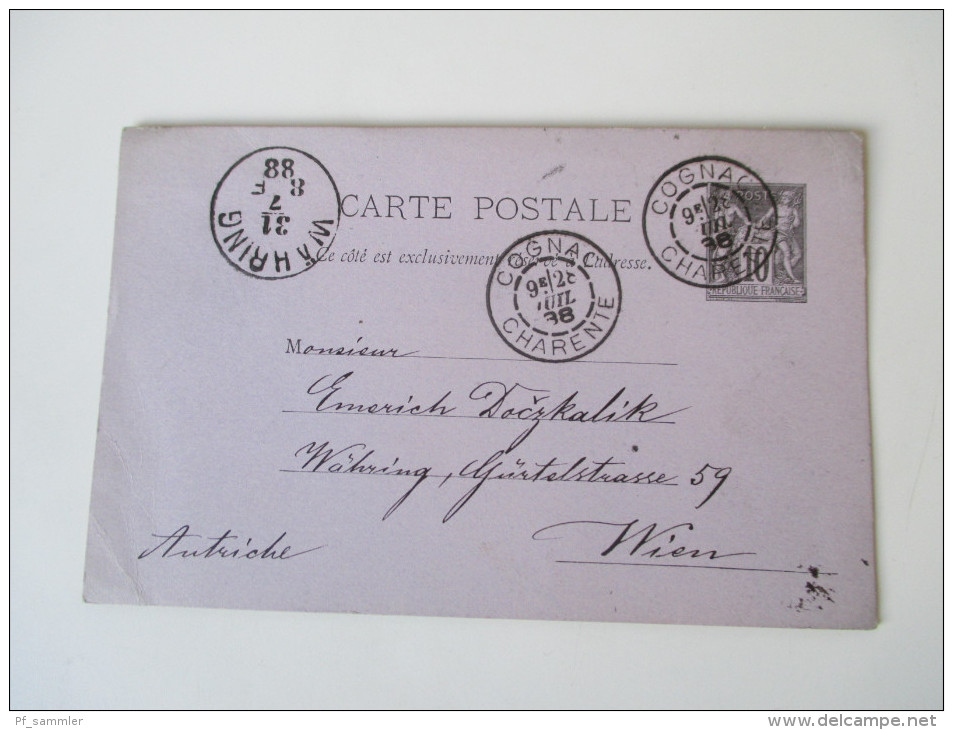 WÄHRING
31
7
8 F
88
CARTE POSTALE
Ce côté est exclusivement réservé à l'adresse.
COGNAC
9E 28
JUIL
88
CHARENTE
COGNAC
9E 28
JUIL
88
CHARENTE
POSTE
10
REPUBLIQUE FRANÇAISE
Monsieur
Emerich Dočzkalik
Währing, Gürtelstrasse 59
Wien
Autriche
Pf_sammler
www.delcampe.net